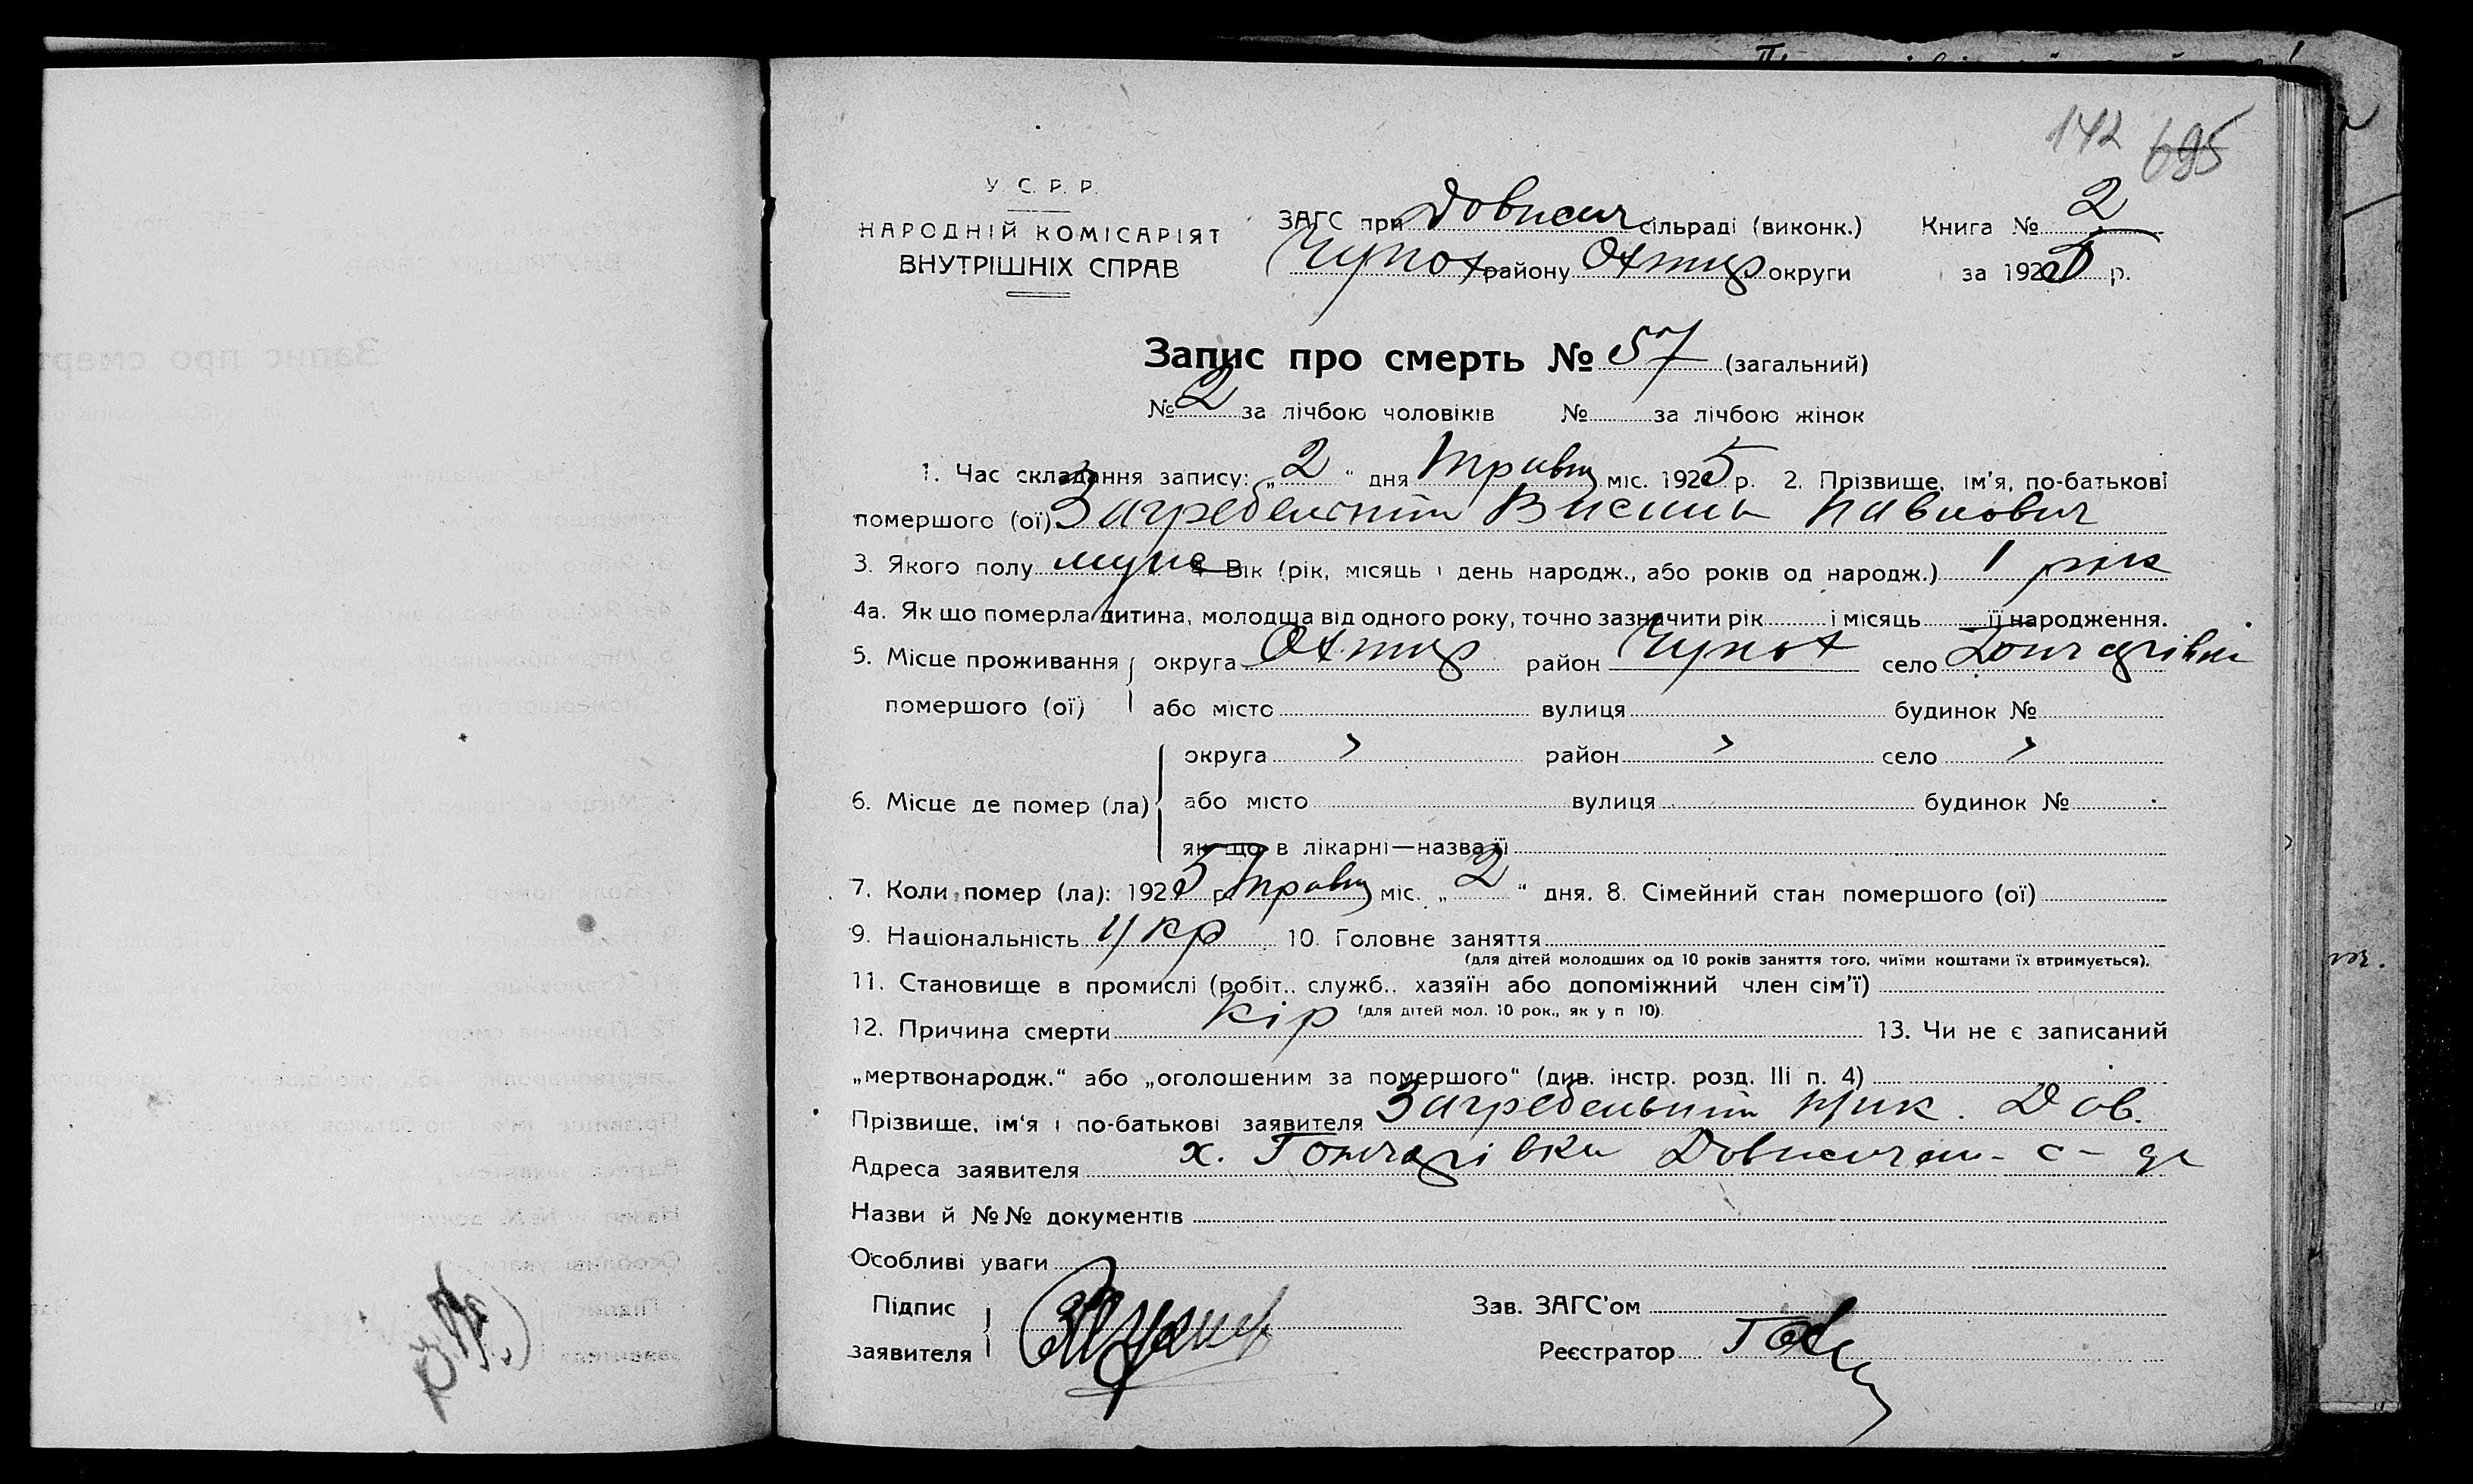 142 695
У. С. Р. Р.
НАРОДНІЙ КОМІСАРІЯТ
ВНУТРІШНІХ СПРАВ
ЗАГС при Довжич сільраді (виконк.) Книга № 2
Чупах району Охтир округи за 1925 р.
Запис про смерть № 57 (загальний)
№ 2 за лічбою чоловіків № за лічбою жінок
1. Час складання запису: „2“ дня Травня міс. 1925 р. 2. Прізвище, ім'я, по-батькові
помершого (ої) Загребельний Василь Павлович
3. Якого полу муж 4 Вік (рік, місяць і день народж., або років од народж.) 1 рік
4а. Як що померла дитина, молодща від одного року, точно зазначити рік і місяць її народження.
5. Місце проживання округа Охтир район Чупах село Гончарівка
помершого (ої) або місто вулиця будинок №
округа » район » село »
6. Місце де помер (ла) або місто вулиця будинок №
як що в лікарні—назва її
7. Коли помер (ла): 1925 р. Травня міс. „2“ дня. 8. Сімейний стан помершого (ої)
9. Національність Укр 10. Головне заняття
(для дітей молодших од 10 років заняття того, чиїми коштами їх втримується).
11. Становище в промислі (робіт.. служб., хазяїн або допоміжний член сім'ї)
(для дітей мол. 10 рок., як у п 10).
12. Причина смерти Кір 13. Чи не є записаний
„мертвонародж.“ або „оголошеним за помершого“ (див. інстр. розд. III п. 4)
Прізвище, ім'я і по-батькові заявителя Загребельний Дов.
Адреса заявителя х. Гончарівка с-
Назви й №№ документів
Особливі уваги
Підпис Зав. ЗАГС'ом
заявителя Реєстратор